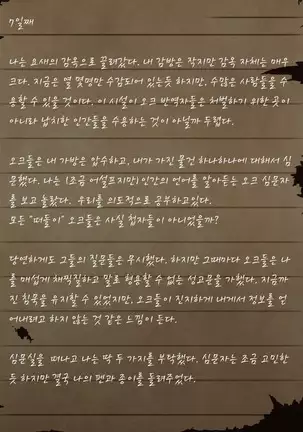 7일째
나는 요새의 감옥으로 끌려갔다. 내 감방은 작지만 감옥 자체는 매우
크다. 지금은 열 몇명만 수감되어 있는듯 하지만, 수많은 사람들을 수
용할 수 있을 것이다. 이 시설이 오크 반역자들을 처벌하기 위한 곳이
아니라 납치한 인간들을 수용하는 것이 아닐까 두렵다.
오크들은 내 가방을 압수하고, 내가 가진 물건 하나하나에 대해서 심
문했다. 나는 (조금 어설프지만) 인간의 언어를 알아듣는 오크 심문자
를 보고 놀랐다. 우리를 의도적으로 공부하고있다.
모든 "떠돌이" 오크들은 사실 첩자들이 아니었을까?
당연하게도 그들의 질문들은 무시했다. 하지만 그때마다 오크들은 나
를 매섭게 채찍질하고 말로 형용할 수 없는 성고문을 가했다. 지금까
진 침묵을 유지할 수 있었지만, 오크들이 진지하게 내게서 정보를 얻
어내려고 하지 않는 것 같은 느낌이 든다.
심문실을 떠나고 나는 딱 두 가지를 부탁했다. 심문자는 조금 고민한
듯 하지만 결국 나의 펜과 종이를 돌려주었다.